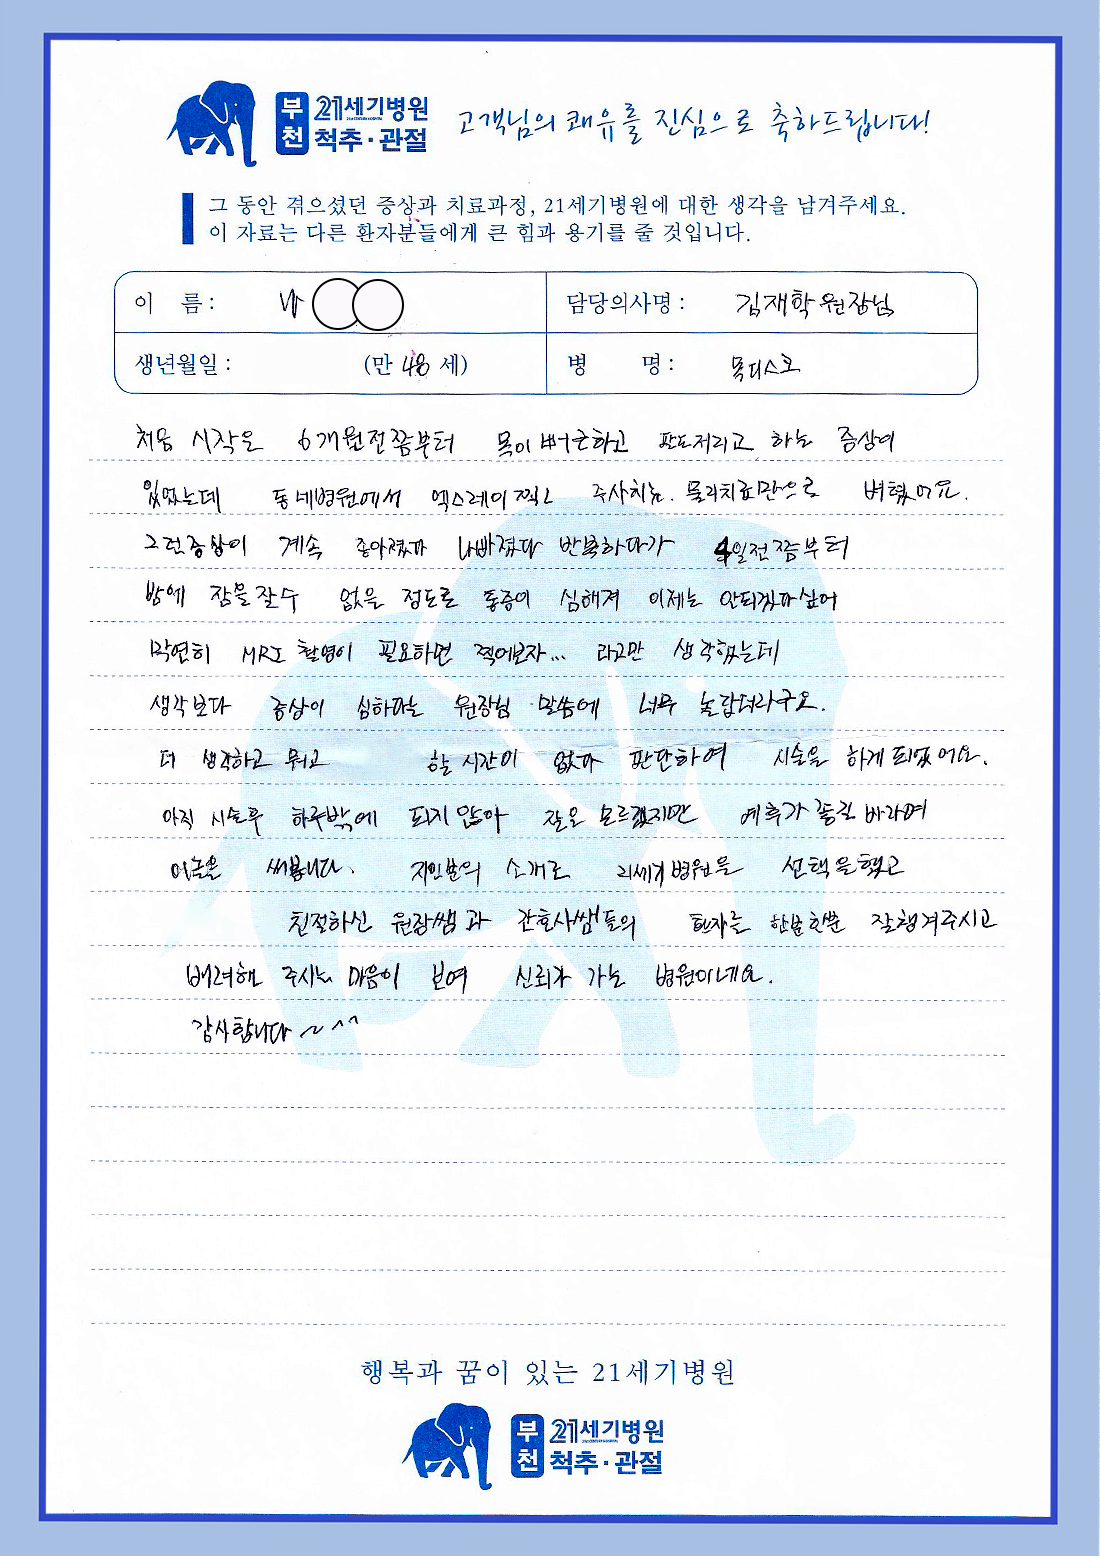 부천 21세기병원 척추·관절 고객님의 쾌유를 진심으로 축하드립니다!
그 동안 겪으셨던 증상과 치료과정, 21세기병원에 대한 생각을 남겨주세요.
이 자료는 다른 환자분들에게 큰 힘과 용기를 줄 것입니다.
이 름 : 담당의사명 : 김재학 원장님
생년월일 : (만 48 세) 병 명 : 목디스크
처음 시작은 6개월전쯤부터 목이 뻐근하고 팔도저리고 하는 증상이
있었는데 동네병원에서 엑스레이 찍고 주사치료. 물리치료만으로 버텼어요.
그런증상이 계속 좋아졌다 나빠졌다 반복하다가 4일전쯤부터
밤에 잠을 잘수 없을 정도로 통증이 심해져 이제는 안되겠다싶어
막연히 MRI 촬영이 필요하면 찍어보자... 라고만 생각했는데
생각보다 증상이 심하다는 원장님 말씀에 너무 놀랍더라구요.
더 생각하고 뭐고 할 시간이 없다 판단하여 시술을 하게 되었어요.
아직 시술후 하루밖에 되지 않아 잘은 모르겠지만 예후가 좋길 바라며
이글을 써봅니다. 지인분의 소개로 21세기병원을 선택을 했고
친절하신 원장쌤과 간호사쌤들의 환자를 한분한분 잘챙겨주시고
배려해 주시는 마음이 보여 신뢰가 가는 병원이네요.
감사합니다 ~ ^^
행복과 꿈이 있는 21세기병원
부천 21세기병원 척추·관절